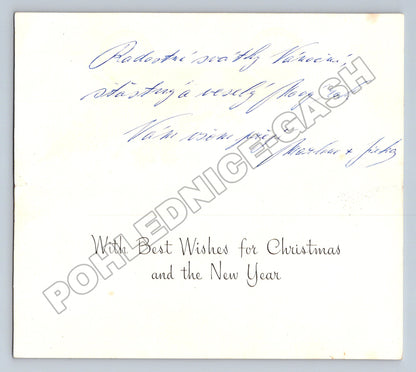 Radostné svátky Vánoční,
šťastný a veselý Nový
Vám všem přejí
With Best Wishes for Christmas
and the New Year
POHLEDNICE-GASH